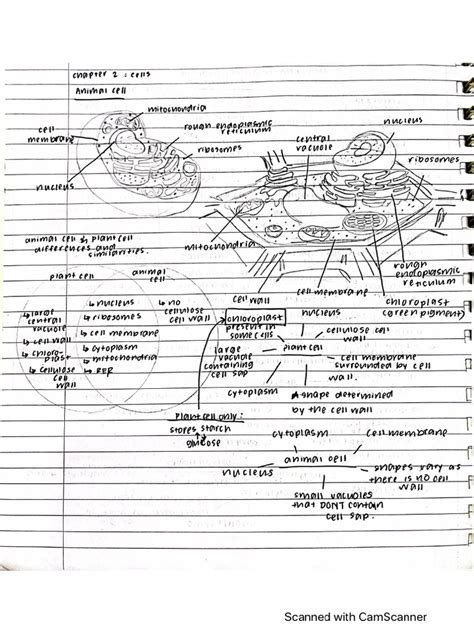 chapter 2 : cells
Animal cell
mitochondria
cell
membrane
rough endoplasmic
reticulum
ribosomes
nucleus
nucleus
central
vacuole
ribosomes
mitochondria
rough
endoplasmic
reticulum
cell membrane
cell wall
chloroplast
(green pigment)
animal cell & plant cell
differences and
similarities.
plant cell
animal
cell
↳ large
central
vacuole
↳ cell wall
↳ chloro-
plast
↳ cellulose
cell
wall
↳ nucleus
↳ ribosomes
↳ cell membrane
↳ cytoplasm
↳ mitochondria
↳ RER
↳ no
cellulose
cell wall
chloroplast
present in
some cells
nucleus
cellulose cell
wall
plant cell
large
vacuole
containing
cell sap
cell membrane
surrounded by cell
wall.
cytoplasm
shape determined
by the cell wall
Plant cell only :
stores starch
glucose
cytoplasm
cell membrane
animal cell
nucleus
shapes vary as
there is no cell
wall
small vacuoles
that DON'T contain
cell sap.
Scanned with CamScanner